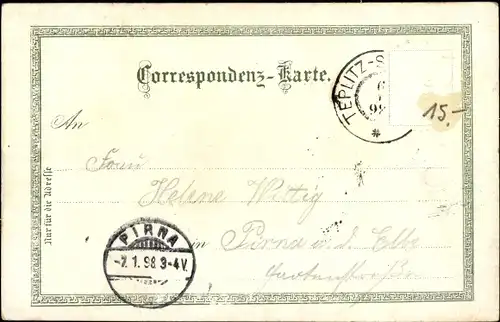 Correspondenz-Karte.
TEPLITZ-S
6
1
98
15.-
An
Frau
Helene Wittig
in Pirna a. d. Elbe
Nur für die Adresse
PIRNA
-7.1.98.3-4V.